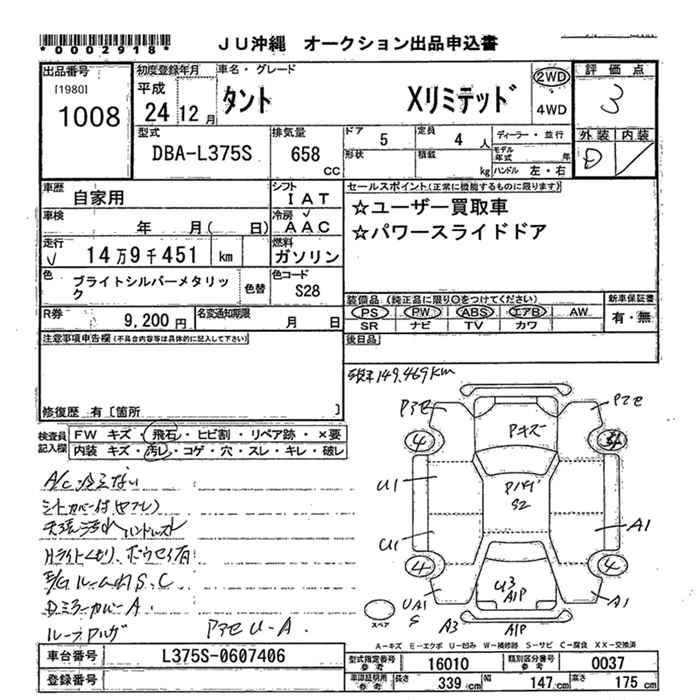 *0002918*
JU沖縄 オークション出品申込書
出品番号
[1980]
1008
初度登録年月
平成
24 12 月
車名・グレード
タント Xリミテッド
2WD
4WD
評価点
3
外装 内装
D /
型式
DBA-L375S
排気量
658
CC
ドア
5
定員
4 人
形状
積載
kg
ディーラー・並行
モデル年式 年
ハンドル 左・右
車歴
自家用
シフト
IAT
車検
年 月( 日)
冷房
AAC
走行
14万9千451 km
燃料
ガソリン
色
ブライトシルバーメタリック
色替
色コード
S28
R券
9,200 円
名変通知期限
月 日
セールスポイント(正常に機能するものに限ります)
☆ユーザー買取車
☆パワースライドドア
装備品 (純正品に限り○をつけてください)
PS PW ABS エアB AW
SR ナビ TV カワ
新車保証書
有・無
後日品
注意事項申告欄(不具合内容等は具体的に記入して下さい)
修復歴 有 [箇所 ]
検査員記入欄
FW キズ・飛石・ヒビ割・リペア跡・×要
内装 キズ・汚レ・コゲ・穴・スレ・キレ・破レ
149,469km
A/C冷えない
シートカバー付(ヤブレ)
天張汚れ ハンドルスレ
Hライトくもり、ボウセイ有
E/Gルーム内S、C
DミラーカバーA
Pアセ U-A
Pアセ
Pアセ
4
Pキズ
U1
S2
U1
A1
4
4
U3
A1P
UA1
S
A3
A1P
A1
スペア
A－キズ E－エクボ U－凹み W－補修跡 S－サビ C－腐食 XX－交換済
車台番号
L375S-0607406
登録番号
型式指定番号 参考
16010
類別区分番号 参考
0037
車検証転用 参考
長さ
339 cm
幅
147 cm
高さ
175 cm